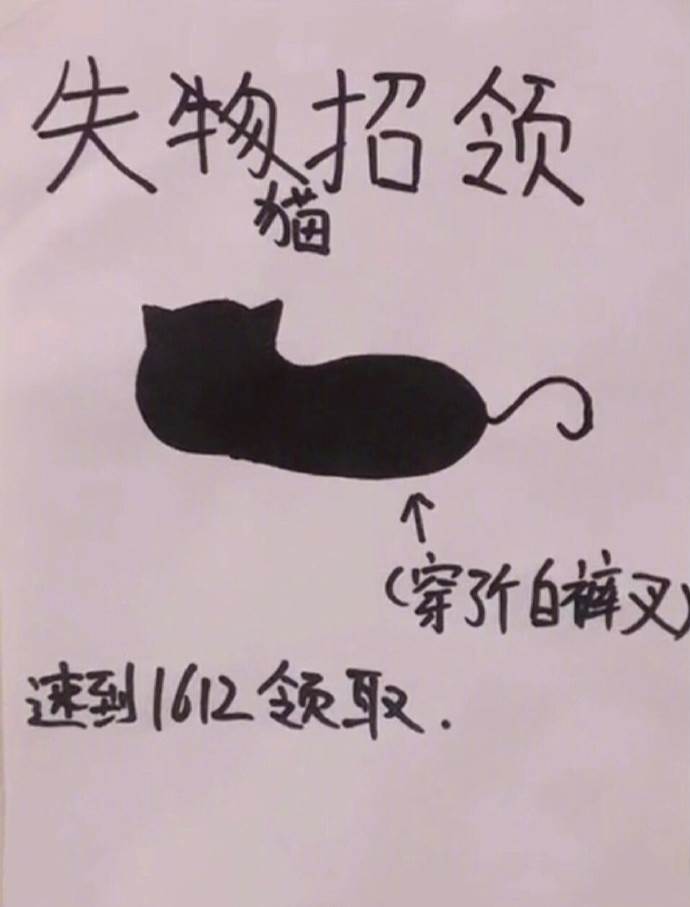 失物招领
猫
↑
(穿了个白裤叉)
速到1612领取.